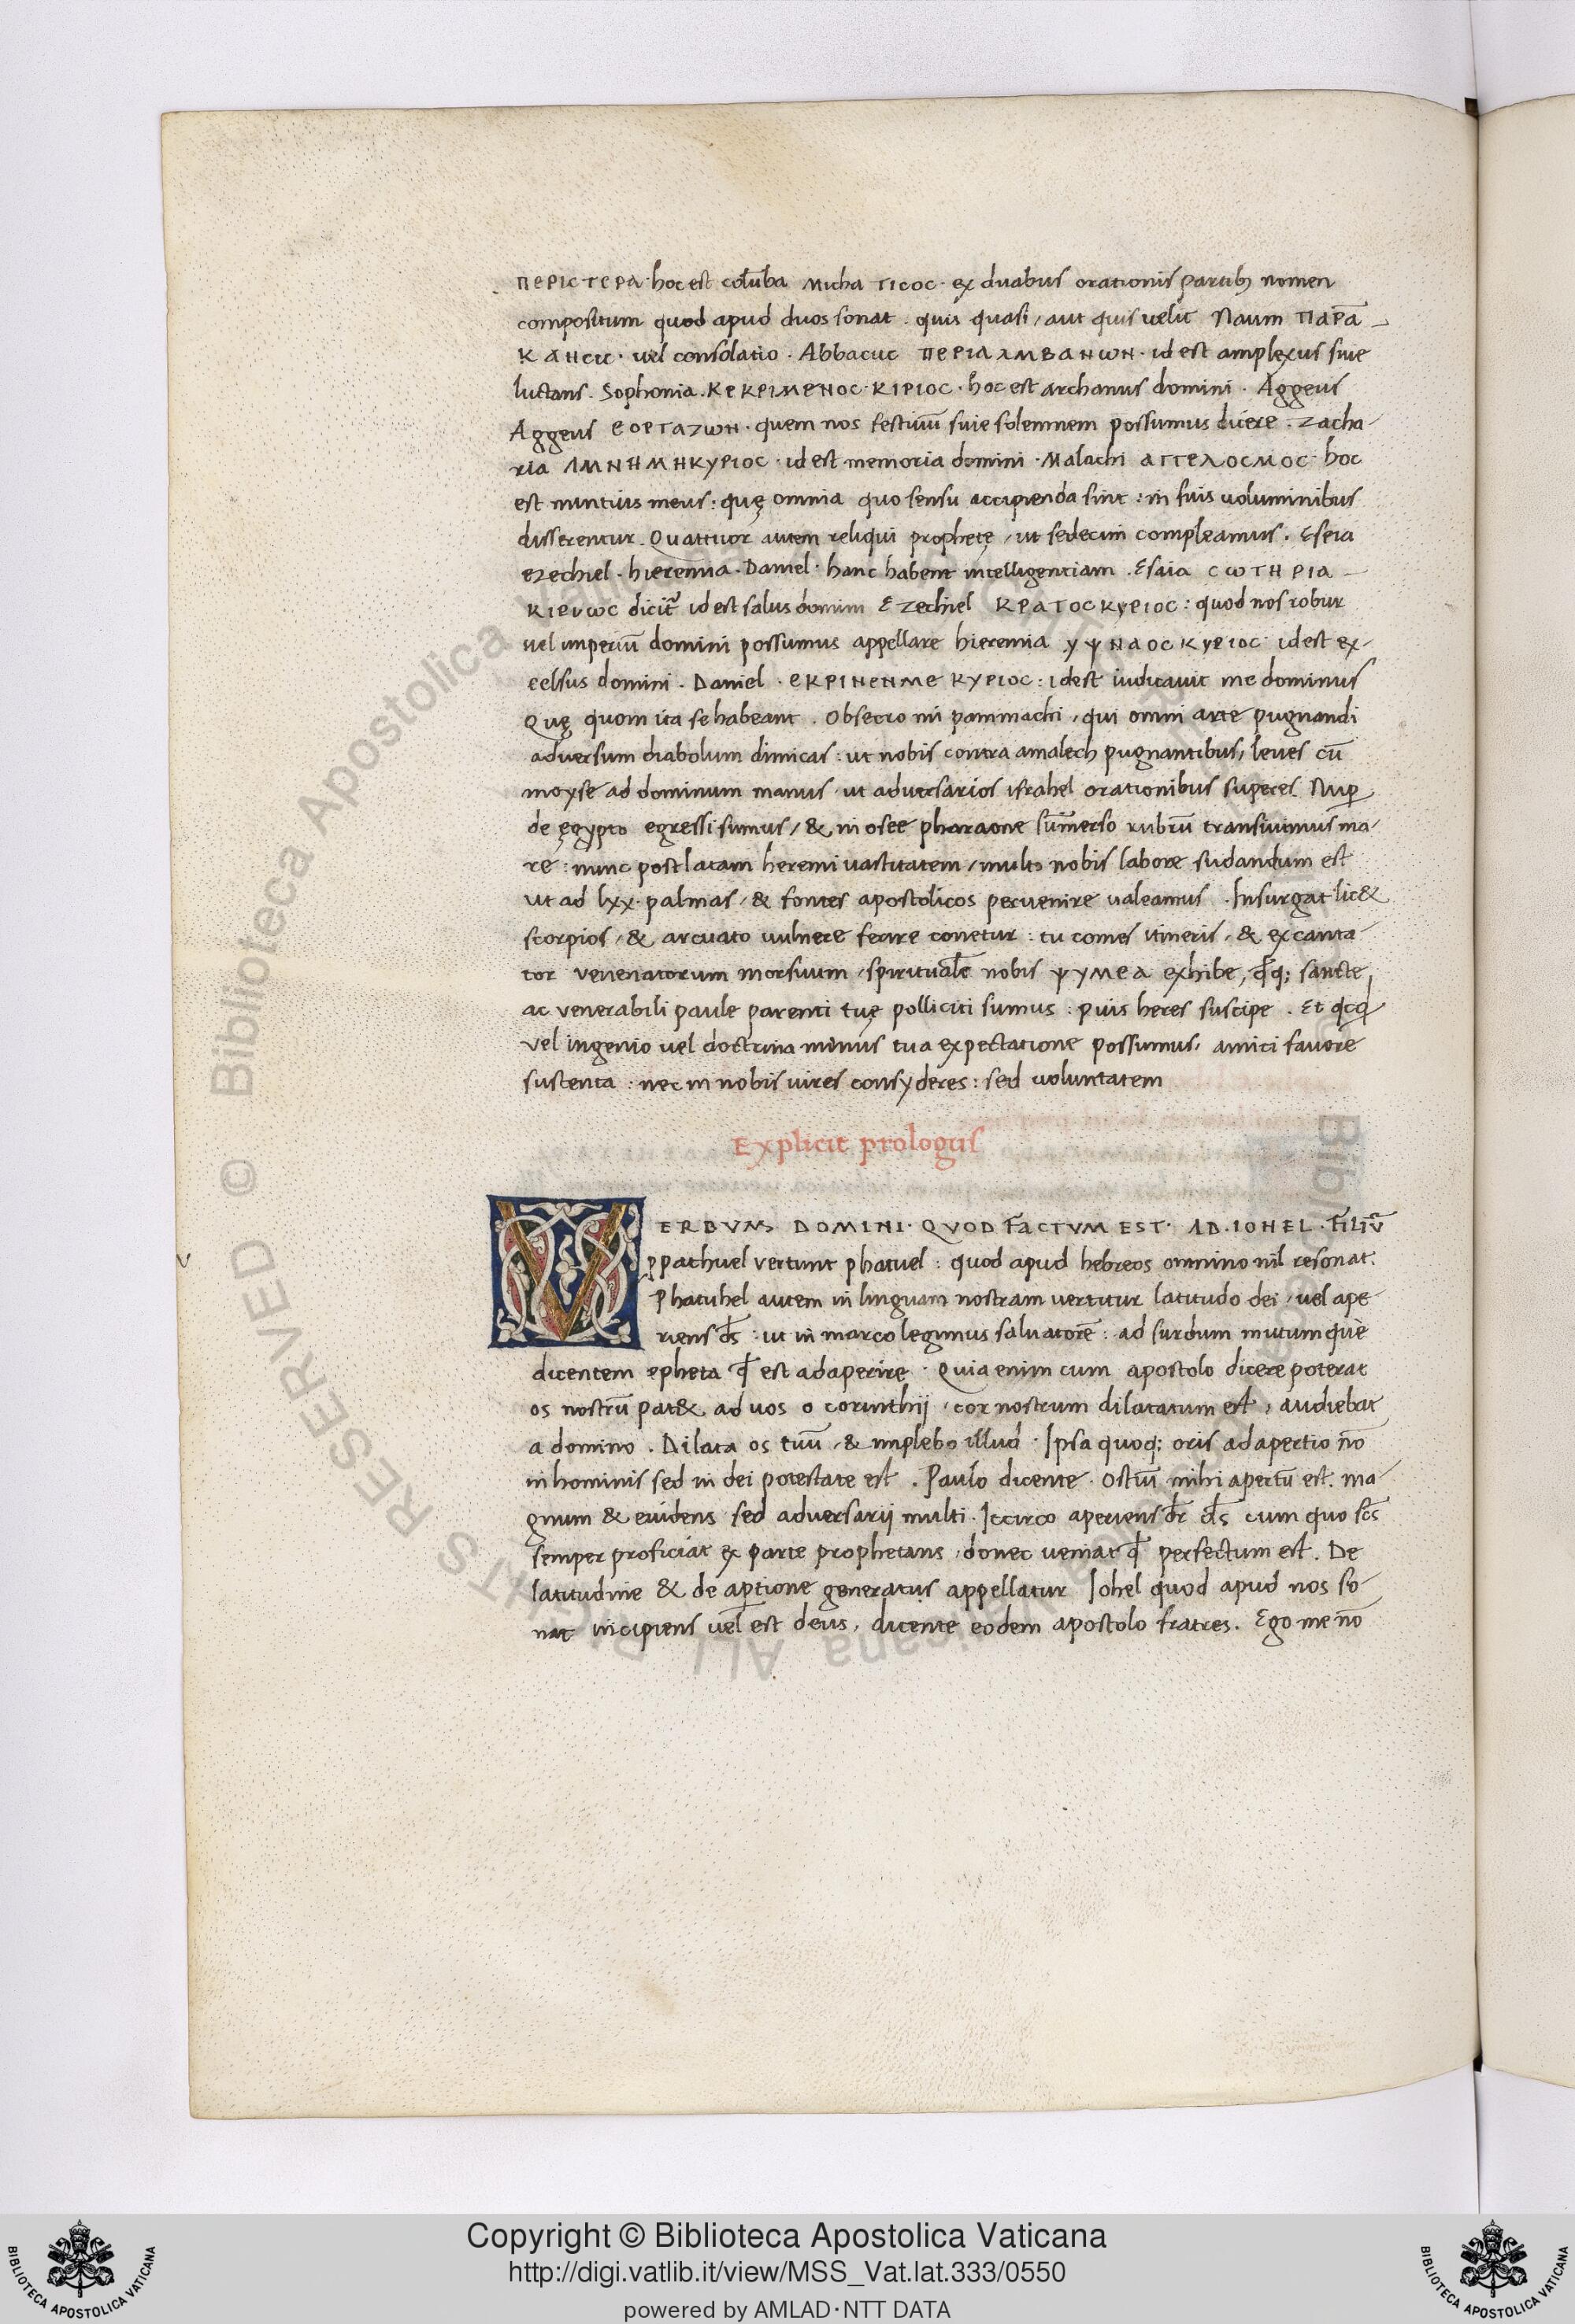 ΠΕΡΙCΤΕΡΑ · hoc est colu̅ba Micha ΤΙCΟC · ex duabus orationis partib; nomen
compositum quod apud duos sonat . quis quasi / aut quis uelit Naum ΠΑΡΑ̅
ΚΑΗCΙC · vel consolatio . Abbacuc ΠΕΡΙΛΛΜΒΑΝΩΝ · id est amplexus siue
luctans . Sophonia . ΚΕΚΡΙΜΕΝΟC · ΚΙΡΙΟC · hoc est archanus domini . Aggeus
Aggeus ΕΟΡΓΑΖΩΝ · quem nos festiuu̅ siue solemnem possumus dicere . Zacha-
ria ΛΜΝΗΜΗΚΥΡΙΟC · id est memoria domini · Malachi ΑΓΓΕΛΟCΜΟC · hoc
est nuntius meus : quę omnia quo sensu accipienda sint : in suis uoluminibus
disserentur . Quattuor autem reliqui prophetę / ut sedecim compleamus . Eseia
ezechiel . hieremia . Daniel · hanc habent intelligentiam . Esaia CΩΤΗΡΙΑ -
ΚΙΡΙΩC dicit᷑ id est salus domini Ezechiel ΚΡΑΤΟCΚΥΡΙΟC : quod nos robur
vel imperiu̅ domini possumus appellare hieremia ΥΨΝΑΟC ΚΥΡΙΟC · id est ex-
celsus domini . Daniel · ΕΚΡΙΝΕΝΜΕ ΚΥΡΙΟC : id est iudicauit me dominus
Quę quom ita se habeant . Obsecro mi pammachi , qui omni arte pugnandi
adversum diabolum dimicas : ut nobis contra amalech pugnantibus , leues cu̅
moyse ad dominum manus · ut adversarios israhel orationibus superes . Nup̱
de ęgypto egressi sumus / & in osee pharaone su̅merso rubru̅ transiuimus ma-
re : nunc post latam heremi uastitatem / multo nobis labore sudandum est
ut ad lxx · palmas / & fontes apostolicos pervenire ualeamus . Insurgat lic&
scorpios / & arcuato uulnere ferire conetur : tu comes itineris / & excanta
tor venenatorum morsuum / spiritual̅e nobis ΨΥΜΕΑ exhibe , q̅q; sancte
ac venerabili paule parenti tuę polliciti sumus : puis heres suscipe . Et qcq̱
vel ingenio vel doctrina minus tua expectatione possumus , amici fauore
sustenta : nec in nobis uires consyderes : sed voluntatem
Explicit prologus
VERBVM DOMINI · QVOD FACTVM EST · AD . IOHEL · FILIV̅
ppathuel vertunt phatuel : quod apud hebreos omnino nil resonat .
Phatuhel autem in linguam nostram uertitur latitudo dei / vel ape
riens d̅s : ut in marco legimus saluatore̅ : ad surdum mutumque
dicentem epheta q̅ est adaperire · Quia enim cum apostolo dicere poterat
os nostru̅ pat& ad uos o corinthij · cor nostrum dilatatum est , audiebat
a domino . Dilata os tuu̅ / & implebo illud · Ipsa quoq; oris adapertio no̅
in hominis sed in dei potestate est . Paulo dicente · ostiu̅ mihi apertu̅ est . ma-
gnum & euidens sed adversarij multi · Iccirco aperiens d̅r d̅s cum quo sc̅s
semper proficiat ex parte prophetans / donec ueniat q̅ perfectum est . De
latitudine & de ap̱tione generatus appellatur Iohel quod apud nos so-
nat incipiens uel̅ est deus , dicente eodem apostolo fratres . Ego me no̅
V
Biblioteca Apostolica Vaticana
ALL RIGHTS RESERVED ©
Copyright © Biblioteca Apostolica Vaticana
http://digi.vatlib.it/view/MSS_Vat.lat.333/0550
powered by AMLAD·NTT DATA
BIBLIOTECA APOSTOLICA VATICANA
BIBLIOTECA APOSTOLICA VATICANA